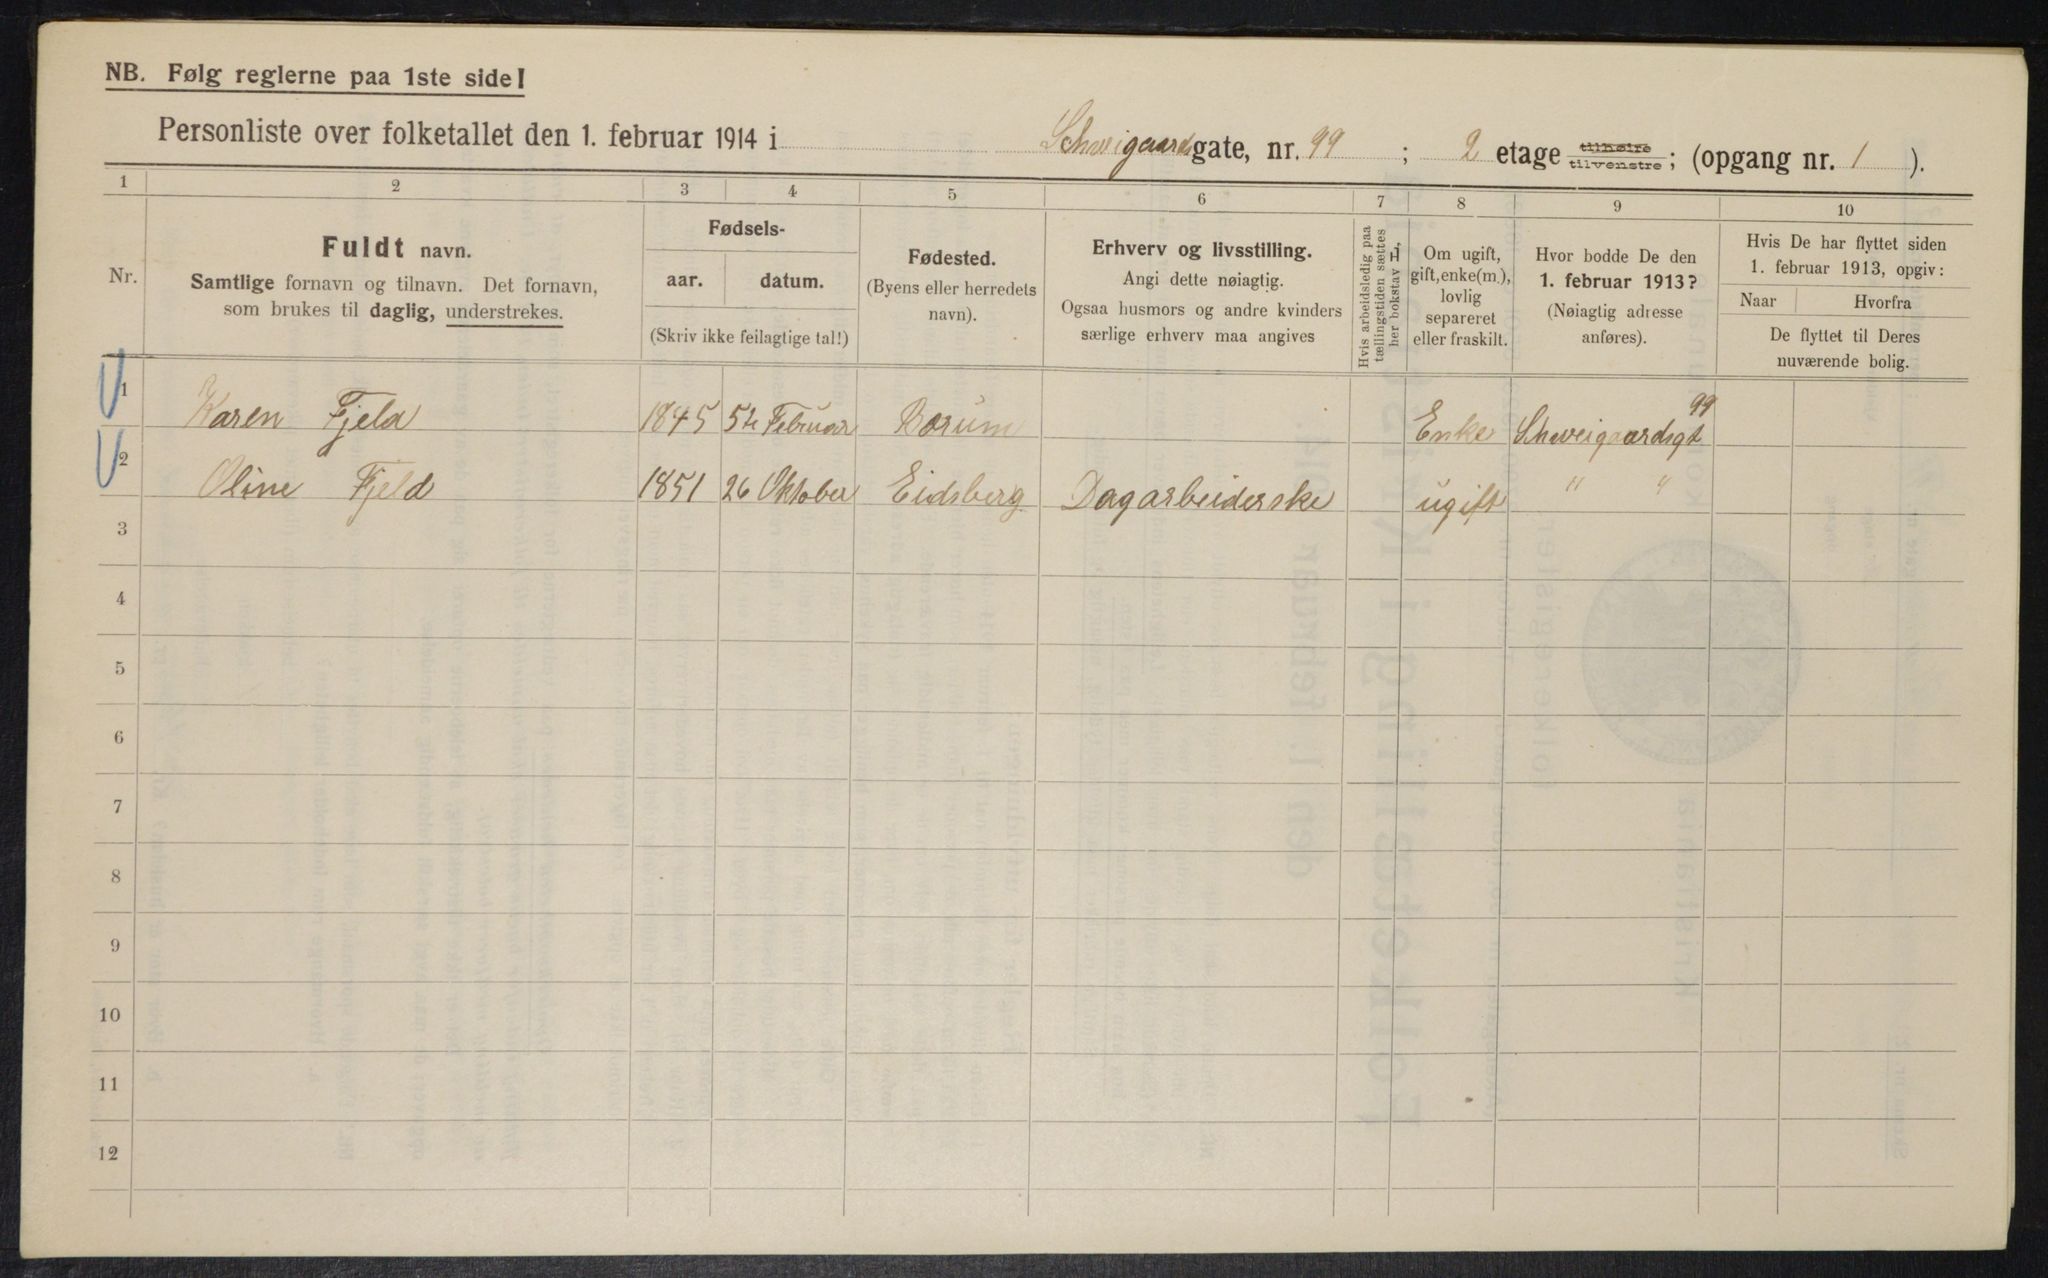 NB. Følg reglerne paa 1ste side!
Personliste over folketallet den 1. februar 1914 i Schweigaardsgate, nr. 99 ; 2 etage tilhøire tilvenstre; (opgang nr. 1 ).
1 2 3 4 5 6 7 8 9 10
Nr.
Fuldt navn.
Samtlige fornavn og tilnavn. Det fornavn,
som brukes til daglig, understrekes.
Fødsels-
aar. datum.
(Skriv ikke feilagtige tal!)
Fødested.
(Byens eller herredets
navn).
Erhverv og livsstilling.
Angi dette nøiagtig.
Ogsaa husmors og andre kvinders
særlige erhverv maa angives
Hvis arbeidsledig paa
tællingstiden sættes
her bokstav L,
Om ugift,
gift, enke(m.),
lovlig
separeret
eller fraskilt.
Hvor bodde De den
1. februar 1913?
(Nøiagtig adresse
anføres).
Hvis De har flyttet siden
1. februar 1913, opgiv:
Naar Hvorfra
De flyttet til Deres
nuværende bolig.
1 Karen Fjeld 1845 5te Februar Bærum Enke Schweigaardsgt 99
2 Oline Fjeld 1851 26 Oktober Eidsberg Dagarbeiderske ugift " "
3
4
5
6
7
8
9
10
11
12